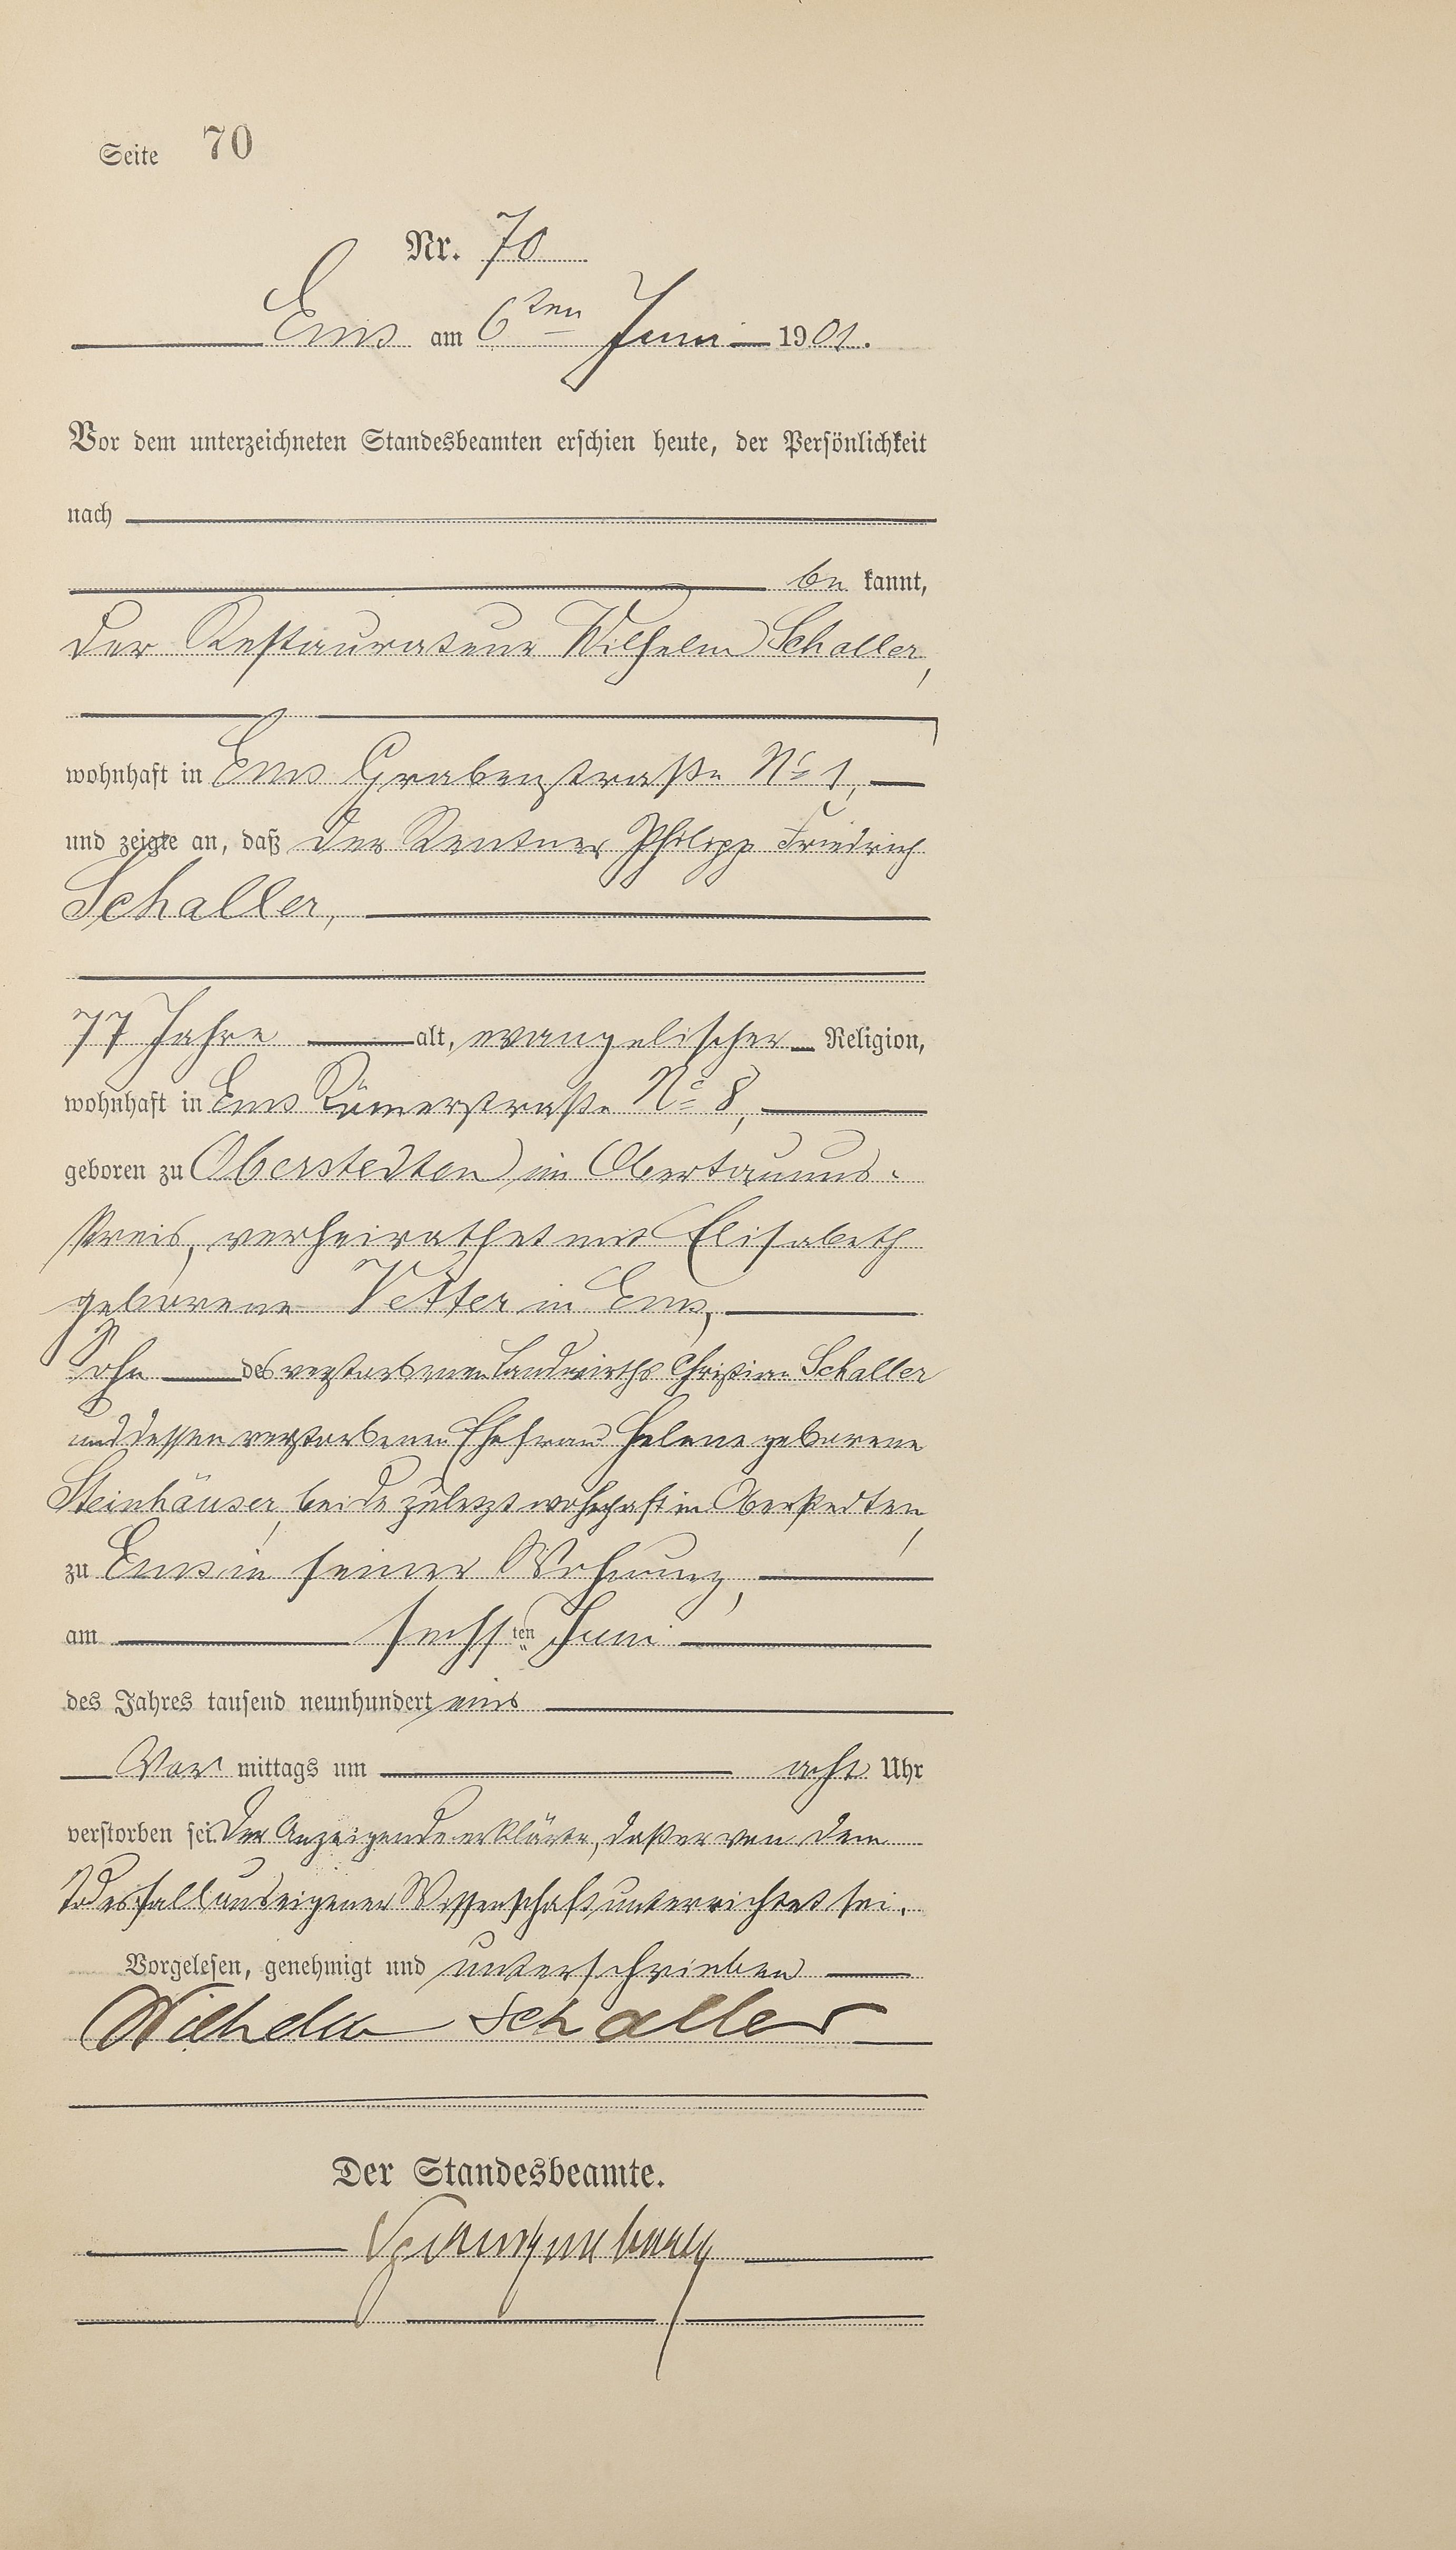 Seite 70
Nr. 70
Ems am 6ten Juni 1901.
Vor dem unterzeichneten Standesbeamten erschien heute, der Persönlichkeit
nach
be kannt,
der Restaurateur Wilhelm Schaller,
wohnhaft in Ems Grabenstraße No 1,
und zeigte an, daß der Rentner Philipp Friedrich
Schaller,
77 Jahre alt, evangelischer Religion,
wohnhaft in Ems Römerstraße No 8,
geboren zu Oberstedten im Obertaunus-
kreis, verheirathet mit Elisabeth
geborene Vetter in Ems,
Sohn des verstorbenen Landwirths Christian Schaller
und dessen verstorbenen Ehefrau Helene geborene
Steinhäuser, beide zuletzt wohnhaft in Oberstedten,
zu Ems in seiner Wohnung,
am sechsten Juni
des Jahres tausend neunhundert eins
Vor mittags um acht Uhr
verstorben sei. Der Anzeigende erklärte, daß er von dem
Todesfall aus eigener Wissenschaft unterrichtet sei.
Vorgelesen, genehmigt und unterschrieben
Wilhelm Schaller
Der Standesbeamte.